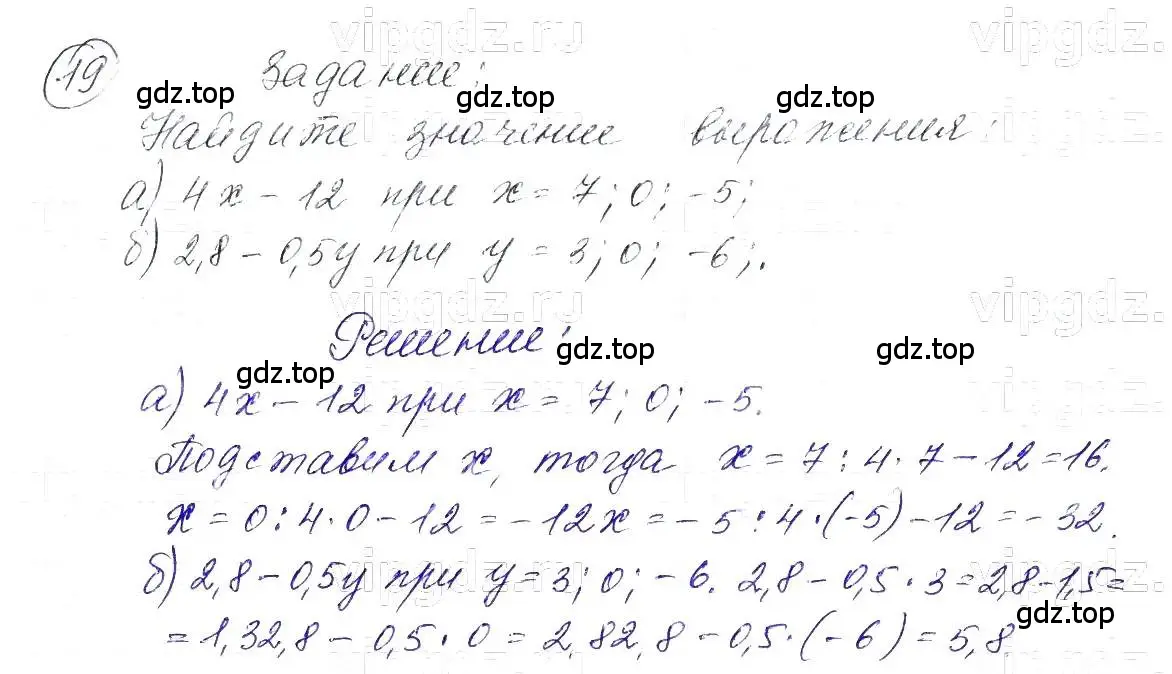 vipgdz.ru vipgdz.
19 Задание:
gdz.top gdz.top gdz.top
Найдите значение выражения:
а) 4x - 12 при x = 7; 0; -5;
б) 2,8 - 0,5y при y = 3; 0; -6;.
vipgdz.ru vipgdz.
Решение:
gdz.top gdz.top gdz.top
а) 4x - 12 при x = 7; 0; -5.
Подставим x, тогда x = 7: 4·7 - 12 = 16.
x = 0: 4·0 - 12 = -12x = -5: 4·(-5) - 12 = -32.
б) 2,8 - 0,5y при y = 3; 0; -6. 2,8 - 0,5·3 = 2,8 - 1,5 =
vipgdz.ru vipgdz.
gdz.top gdz.top
= 1,32,8 - 0,5·0 = 2,82,8 - 0,5·(-6) = 5,8.